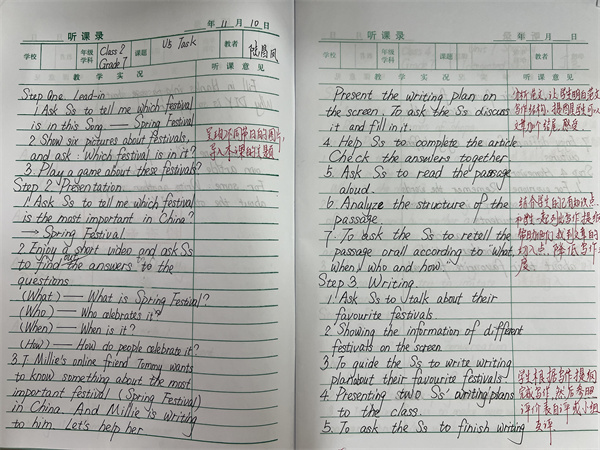 听课录
年 11 月 10 日
学校
年级
学科
Class 2
Grade 7
课题
U5 Task
教者
陆昌凤
教 学 实 况
听 课 意 见
Step One Lead-in
1 Ask Ss to tell me which festival
is in this Song — Spring Festival
2 Show six pictures about festivals,
and ask: Which festival is in it?
3. Play a game about these festivals?
Step 2 Presentation
1. Ask Ss to tell me which festival
is the most important in China?
→ Spring Festival
2. Enjoy a short video and ask Ss
to find out the answers to the
questions
(What) — What is Spring Festival?
(Who) — Who celebrates it?
(When) — When is it?
(How) — How do people celebrate it?
3. T Millie's online friend Tommy wants
to know something about the most
important festival (Spring Festival)
in China. And Millie is writing
to him. Let's help her
导入本课的主题
听课录
年 月 日
学校
年级
学科
课题
教者
教 学 实 况
听 课 意 见
Present the writing plan on
the screen. To ask the Ss discuss
it and fill in it.
4. Help Ss to complete the article.
Check the answers together
5. Ask Ss to read the passage
aloud.
6. Analyze the structure of the
passage.
7. To ask the Ss to retell the
passage orall according to what,
when, who and how.
Step 3 Writing
1. Ask Ss to talk about their
favourite festivals.
2. Showing the information of different
festivals on the screen
3. To guide the Ss to write writing
plan about their favourite festivals.
4. Presenting two Ss' writing plans
to the class.
5. To ask the Ss to finish writing
切入点, 降低写作难
度
学生根据写作提纲
完成写作, 然后参照
评价表自评或小组
互评